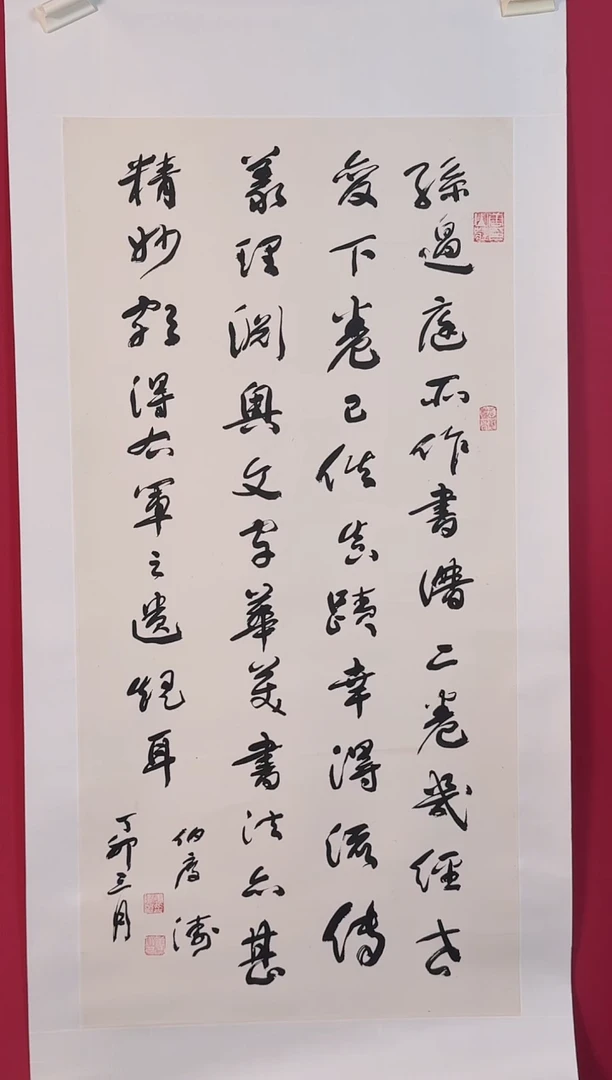 孫過庭所作書譜二卷幾經世
變下卷已佚真蹟幸得流傳
義理淵奧文字華美書法亦甚
精妙頗得右軍之遺規耳
丁卯三月
伯度濤